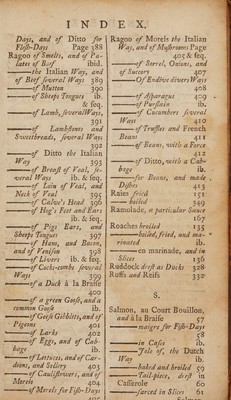 INDEX.
Days, and of Ditto for
Fish-Days Page 388
Ragoo of Smelts, and of Pa-
lates of Beef ibid.
—the Italian Way, and
of Beef several Ways 389
—of Mutton 390
—of Sheeps Tongues ib.
& seq.
—of Lamb, several Ways,
391
—of Lambstones and
Sweetbreads, several Ways
392
—of Ditto the Italian
Way 393
—of Breast of Veal, se-
veral Ways ib. & seq.
—of Loin of Veal, and
Neck of Veal 395
—of Calve's Head 396
—of Hog's Feet and Ears
ib. & seq.
—of Pigs Ears, and
Sheeps Tongues 397
—of Ham, and Bacon,
and of Venison 398
—of Livers ib. & seq.
—of Cocks-combs several
Ways 399
—of a Duck à la Braise
400
—of a green Goose, and a
common Goose ib.
—of Goose Giblets, and of
Pigeons 401
—of Larks 402
—of Eggs, and of Cab-
bage ib.
—of Lettuces, and of Car-
doons, and Sellery 403
—of Cauliflowers, and of
Morels 404
—of Morels for Fish-Days
Ragoo of Morels the Italian
Way, and of Mushrooms Page
405 & seq.
—of Sorrel, Onions, and
of Succory 407
—Of Endive divers Ways
408
—of Asparagus 409
—of Purslain ib.
—of Cucumbers several
Ways 410
—of Truffles and French
Beans 411
—of Beans, with a Force
412
—of Ditto, with a Cab-
bage ib.
—for Beans, and made
Dishes 413
Raies fried 151
—boiled 349
Ramolade, a particular Sauce
167
Roaches broiled 135
—boiled, fried, and ma-
rinated ib.
—en marinade, and in
Slices 136
Ruddock drest as Ducks 328
Ruffs and Reifs 332
S.
Salmon, au Court Bouillon,
and à la Braise 57
—maigre for Fish-Days
58
—in Cases ib.
—Jole of, the Dutch
Way ib.
—baked and broiled 59
—Tail-piece, drest in
Casserole 60
—farced in Slices 61